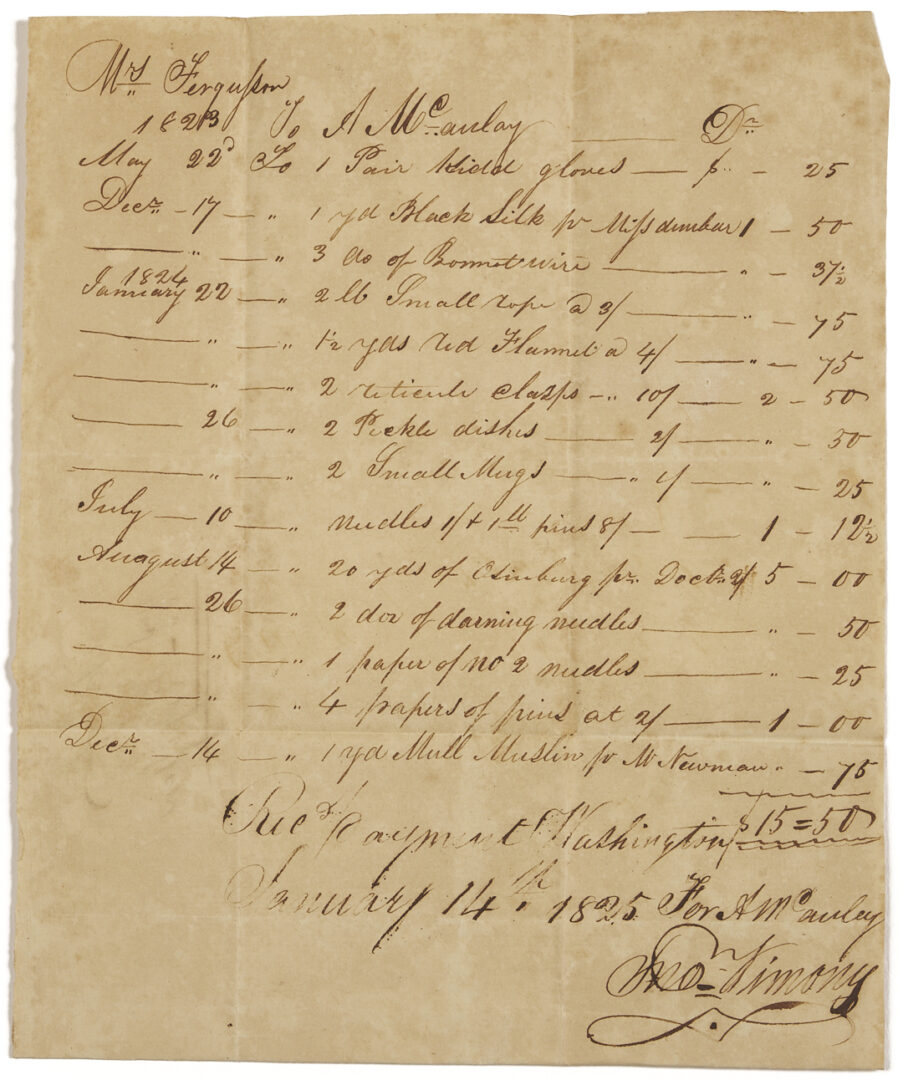 Mrs Fergusson
1823 To A McCaulay Dr
May 22d To 1 Pair Kidd gloves — $ " — 25
Decr — 17 — " 1 yd Black Silk pr Miss dunbar 1 — 50
— " — " 3 do of Bonnet wire — " — 37½
1824
January 22 — " 2 lb Small rope @ 3/ — " — 75
— " — " 1½ yds red Flannel @ 4/ — " — 75
— " — " 2 reticule clasps — " 10/ — 2 — 50
— 26 — " 2 Pickle dishes — 2/ — " — 50
— " — " 2 Small Mugs — " 1/ — " — 25
July — 10 — " needles 1/ & 1 lb pins 8/ — — 1 — 12½
Auagust 14 — " 20 yds of Osinburg pr. Doctr. 2/ 5 — 00
— 26 — " 2 doz of darning needles — " — 50
— " — " 1 paper of no 2 needles — " — 25
— " — " 4 papers of pins at 2/ — 1 — 00
Decr — 14 — " 1 yd Mull Muslin pr M Newman " — 75
Recd payment Washington $ 15=50
January 14th. 1825 For A McCauley
Jno. Timony